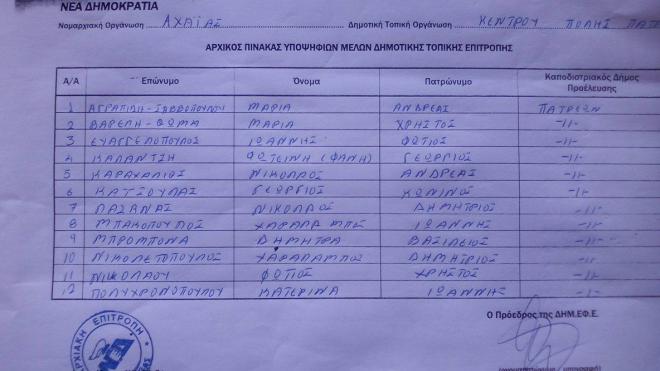 ΝΕΑ ΔΗΜΟΚΡΑΤΙΑ
Νομαρχιακή Οργάνωση ΑΧΑΪΑΣ Δημοτική Τοπική Οργάνωση ΚΕΝΤΡΟΥ ΠΟΛΗΣ ΠΑΤΡ
ΑΡΧΙΚΟΣ ΠΙΝΑΚΑΣ ΥΠΟΨΗΦΙΩΝ ΜΕΛΩΝ ΔΗΜΟΤΙΚΗΣ ΤΟΠΙΚΗΣ ΕΠΙΤΡΟΠΗΣ
Α/Α Επώνυμο Όνομα Πατρώνυμο Καποδιστριακός Δήμος Προέλευσης
1 ΑΓΡΑΠΙΔΗ-ΣΑΒΒΟΠΟΥΛΟΥ ΜΑΡΙΑ ΑΝΔΡΕΑΣ ΠΑΤΡΕΩΝ
2 ΒΑΡΕΛΗ-ΘΩΜΑ ΜΑΡΙΑ ΧΡΗΣΤΟΣ -//-
3 ΕΥΑΓΓΕΛΟΠΟΥΛΟΣ ΙΩΑΝΝΗΣ ΦΩΤΙΟΣ -//-
4 ΚΑΛΑΝΤΖΗ ΦΩΤΕΙΝΗ (ΦΑΝΗ) ΓΕΩΡΓΙΟΣ -//-
5 ΚΑΡΑΧΑΛΙΟΣ ΝΙΚΟΛΑΟΣ ΑΝΔΡΕΑΣ -//-
6 ΚΑΤΣΟΥΛΑΣ ΓΕΩΡΓΙΟΣ ΚΩΝ/ΝΟΣ -//-
7 ΛΑΖΑΝΑΣ ΝΙΚΟΛΑΟΣ ΔΗΜΗΤΡΙΟΣ -//-
8 ΜΠΑΚΟΠΟΥΛΟΣ ΧΑΡΑΛΑΜΠΟΣ ΙΩΑΝΝΗΣ -//-
9 ΜΠΡΟΜΠΟΝΑ ΔΗΜΗΤΡΑ ΒΑΣΙΛΕΙΟΣ -//-
10 ΝΙΚΟΛΕΤΟΠΟΥΛΟΣ ΧΑΡΑΛΑΜΠΟΣ ΔΗΜΗΤΡΙΟΣ -//-
11 ΝΙΚΟΛΑΟΥ ΦΩΤΙΟΣ ΧΡΗΣΤΟΣ -//-
12 ΠΟΛΥΧΡΟΝΟΠΟΥΛΟΥ ΚΑΤΕΡΙΝΑ ΙΩΑΝΝΗΣ -//-
Ο Πρόεδρος της ΔΗΜ.ΕΦ.Ε.
ΕΠΙΤΡΟΠΗ